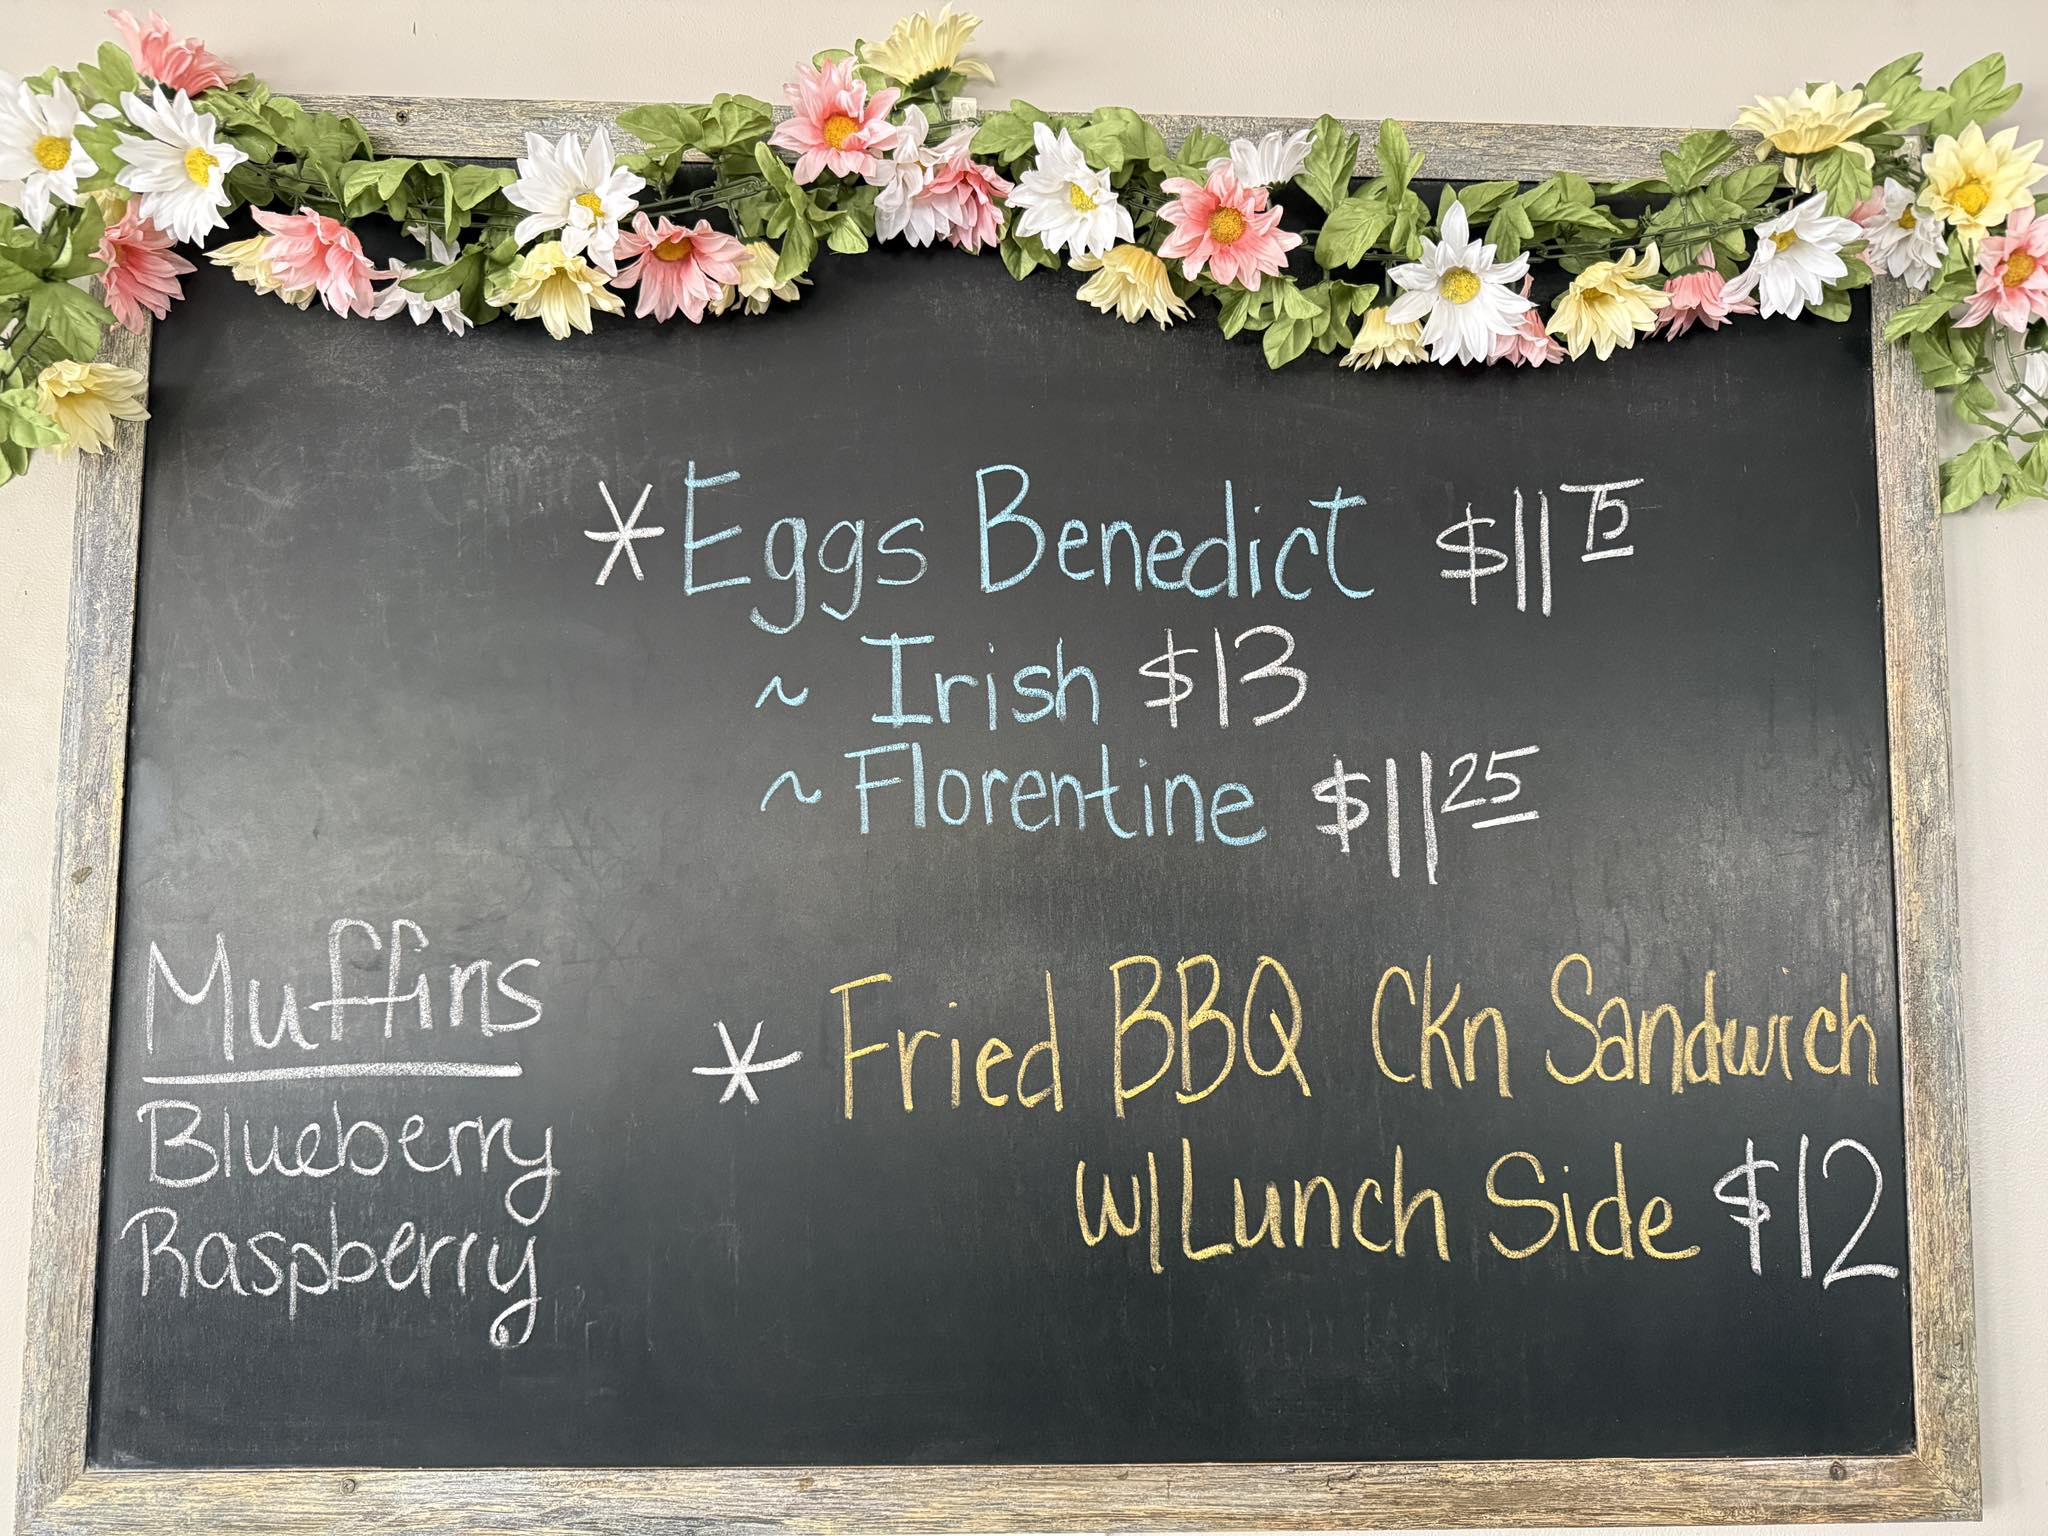 *Eggs Benedict $11 75
~ Irish $13
~ Florentine $11 25
Muffins
Blueberry
Raspberry
* Fried BBQ Ckn Sandwich
w/Lunch Side $12